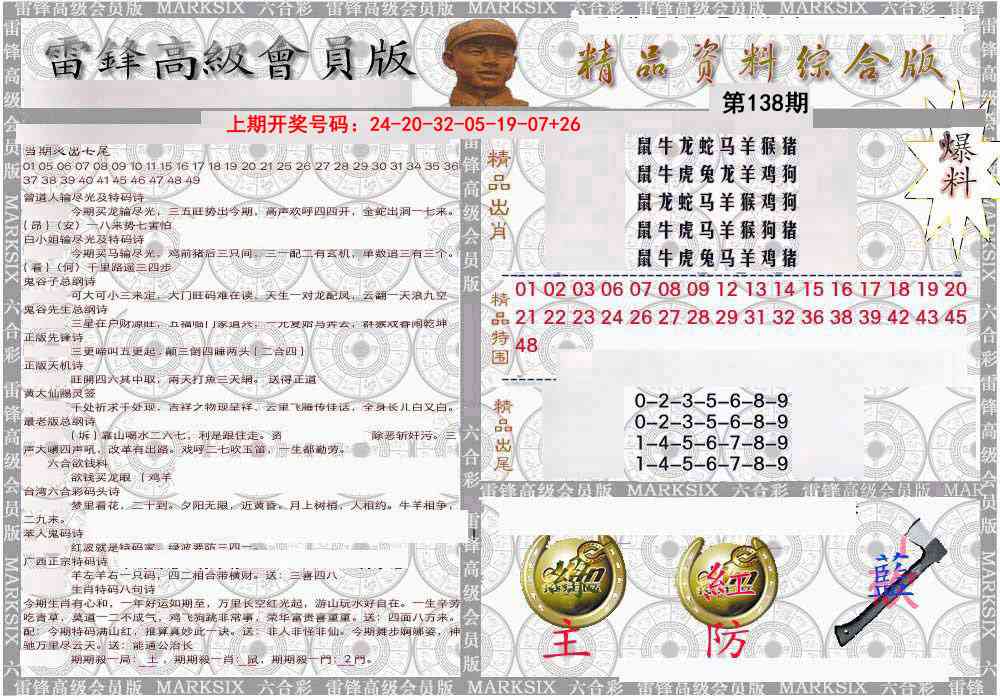 雷锋高级会员版 MARKSIX 六合彩 雷锋高级会员版 MARKSIX 六合彩 雷锋高级会员版 MARKSIX 六合彩
雷鋒高級會員版
精品资料综合版
第138期
上期开奖号码：24-20-32-05-19-07+26
爆料
01 05 06 07 08 09 10 11 15 16 17 18 19 20 21 25 26 27 28 29 30 31 34 35 36
37 38 39 40 41 45 46 47 48 49
曾道人输尽光及特码诗
今期买龙输尽光，三五旺势出今期，高声欢呼四四开，金蛇出洞一七来。
白小姐输尽光及特码诗
今期买马输尽光，鸡前猪后三只间，三一配二有玄机，单数追三有三个。
(看)(何)千里路遥三四步
鬼谷子总纲诗
可大可小三来定，大门旺码难在读，天生一对龙配凤，云翻一天浪九空
鬼谷先生总纲诗
正版先锋诗
三更啼叫五更起，颠三倒四睡两头(二合四)
正版天机诗
旺開四六其中取，兩天打魚三天網。送得正道
黄大仙赐灵签
最老版总纲诗
除恶斩奸污。三
声大嚷四声吼，改革有出路。戏呼二七吹玉笛，一生都勤劳。
六合欲钱料
欲钱买龙眼 (鸡羊
台湾六合彩码头诗
梦里看花，二十到。夕阳无限，近黄昏。月上树梢，人相约。牛羊相争，
二九来。
本人鬼码诗
广西正宗特码诗
羊左羊右一只码，四二相合带横财。送：三喜四八
生肖特码八句诗
今期生肖有心和，一年好运如期至，万里长空红光起，游山玩水好自在。一生辛劳
吃青草，莫道一二不成气，鸡飞狗跳非常事，荣华富贵喜重重。送：四面八万来。
配：今期特码满山红，推算真妙此一诀。送：非人非怪非仙。今期舞步婀娜姿，神
驰万里尽云天。送：能通公治长
期期殺一局：土，期期殺一肖：鼠，期期殺一門：2門。
精品出肖
鼠牛龙蛇马羊猴猪
鼠牛虎兔龙羊鸡狗
鼠龙蛇马羊猴鸡狗
鼠牛虎马羊猴狗猪
鼠牛虎兔马羊鸡猪
精品特围
01 02 03 06 07 08 09 12 13 14 15 16 17 18 19 20
21 22 23 24 26 27 28 29 31 32 36 38 39 42 43 45
48
精品出尾
0-2-3-5-6-8-9
0-2-3-5-6-8-9
1-4-5-6-7-8-9
1-4-5-6-7-8-9
雷锋高级会员版 MARKSIX 六合彩 雷锋高级会员版
主
紅
防
藍
雷锋高级会员版 MARKSIX 六合彩 雷锋高级会员版 MARKSIX 六合彩 雷锋高级会员版 MARKSIX 六合彩 雷锋